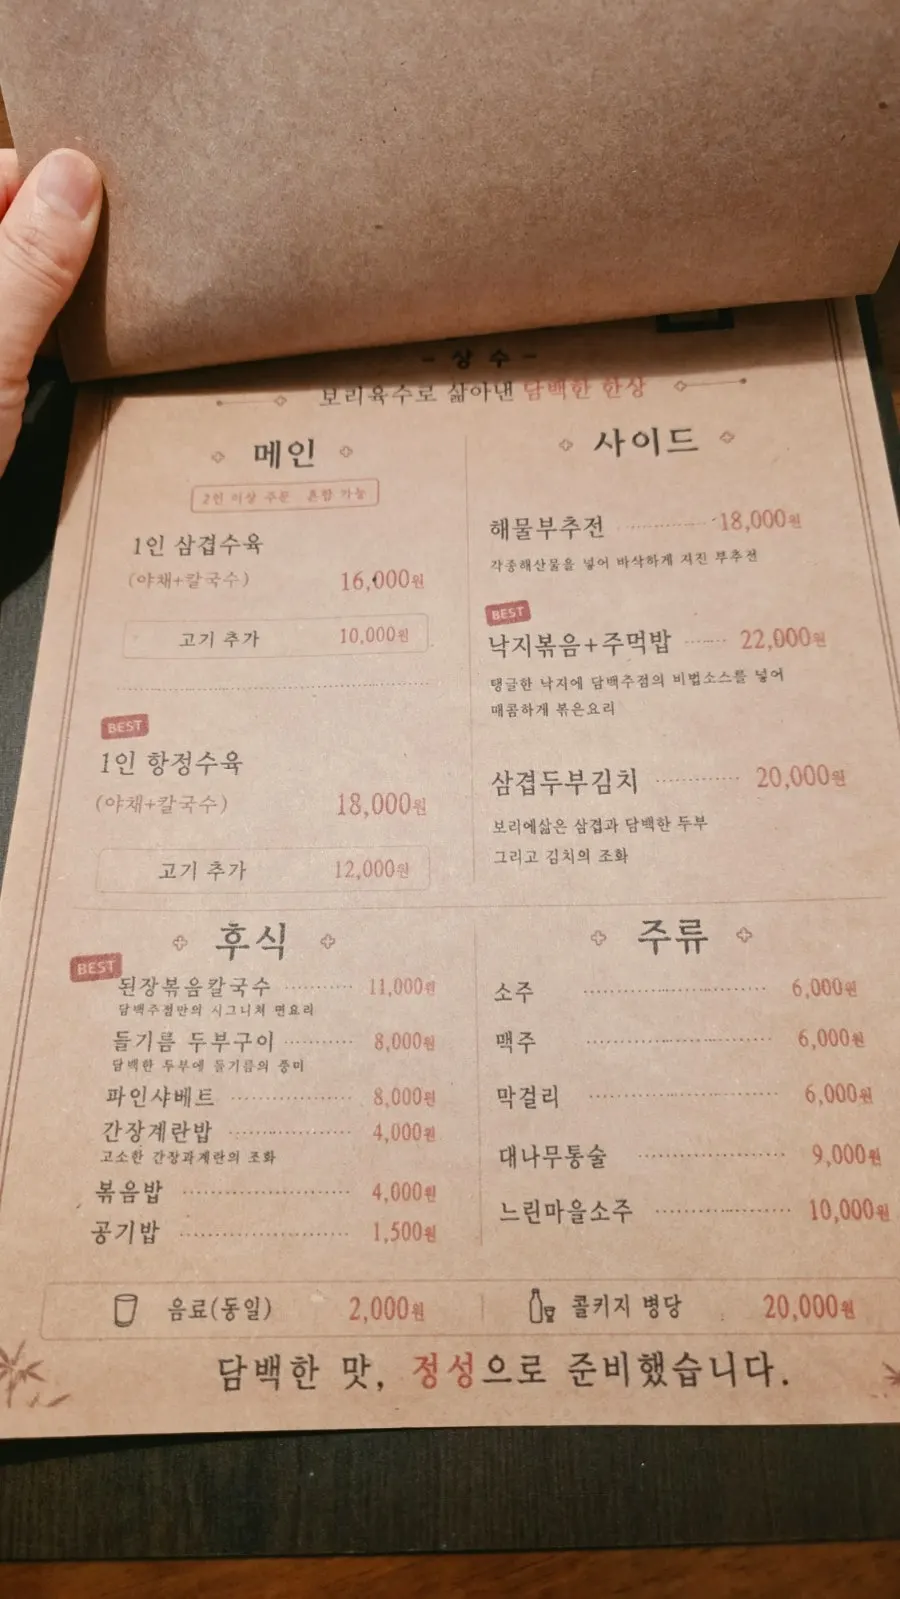 - 상수 -
보리육수로 삶아낸 담백한 한상
메인
2인 이상 주문 혼합 가능
1인 삼겹수육
(야채+칼국수) 16,000원
고기 추가 10,000원
BEST
1인 항정수육
(야채+칼국수) 18,000원
고기 추가 12,000원
사이드
해물부추전 18,000원
각종해산물을 넣어 바삭하게 지진 부추전
BEST
낙지볶음+주먹밥 22,000원
탱글한 낙지에 담백주점의 비법소스를 넣어
매콤하게 볶은요리
삼겹두부김치 20,000원
보리에삶은 삼겹과 담백한 두부
그리고 김치의 조화
후식
BEST
된장볶음칼국수 11,000원
담백주점만의 시그니처 면요리
들기름 두부구이 8,000원
담백한 두부에 들기름의 풍미
파인샤베트 8,000원
간장계란밥 4,000원
고소한 간장과계란의 조화
볶음밥 4,000원
공기밥 1,500원
주류
소주 6,000원
맥주 6,000원
막걸리 6,000원
대나무통술 9,000원
느린마을소주 10,000원
음료(동일) 2,000원
콜키지 병당 20,000원
담백한 맛, 정성으로 준비했습니다.